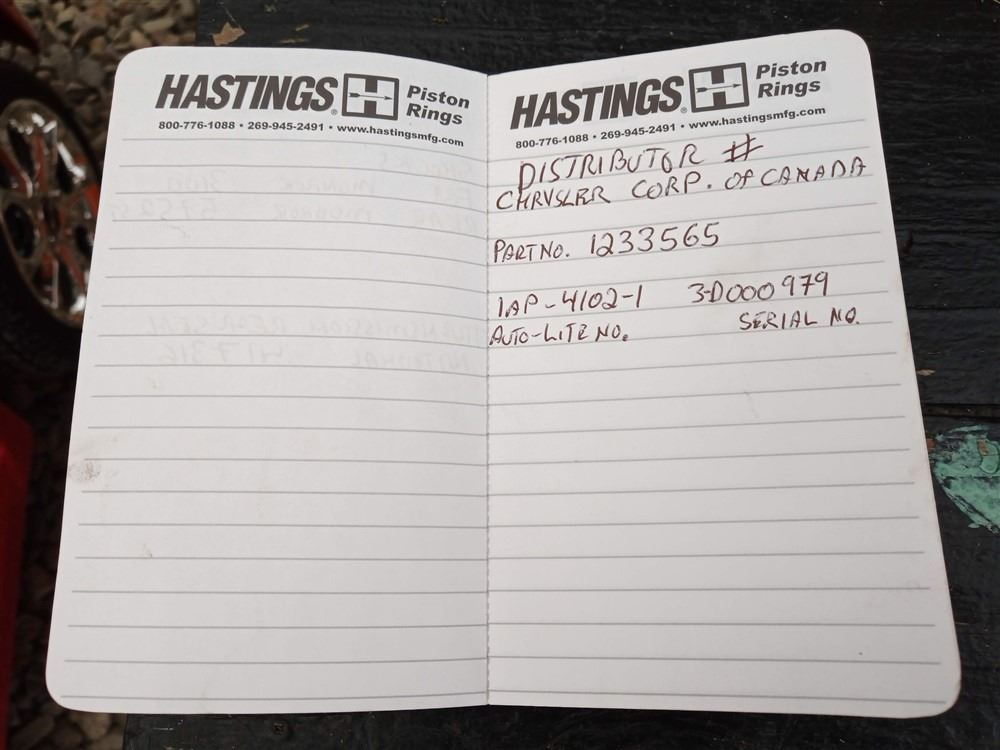 HASTINGS® H Piston Rings
800-776-1088 • 269-945-2491 • www.hastingsmfg.com
HASTINGS® H Piston Rings
800-776-1088 • 269-945-2491 • www.hastingsmfg.com
DISTRIBUTOR #
CHRYSLER CORP. OF CANADA
PART NO. 1233565
IAP-4102-1 3-D000979
AUTO-LITE NO. SERIAL NO.